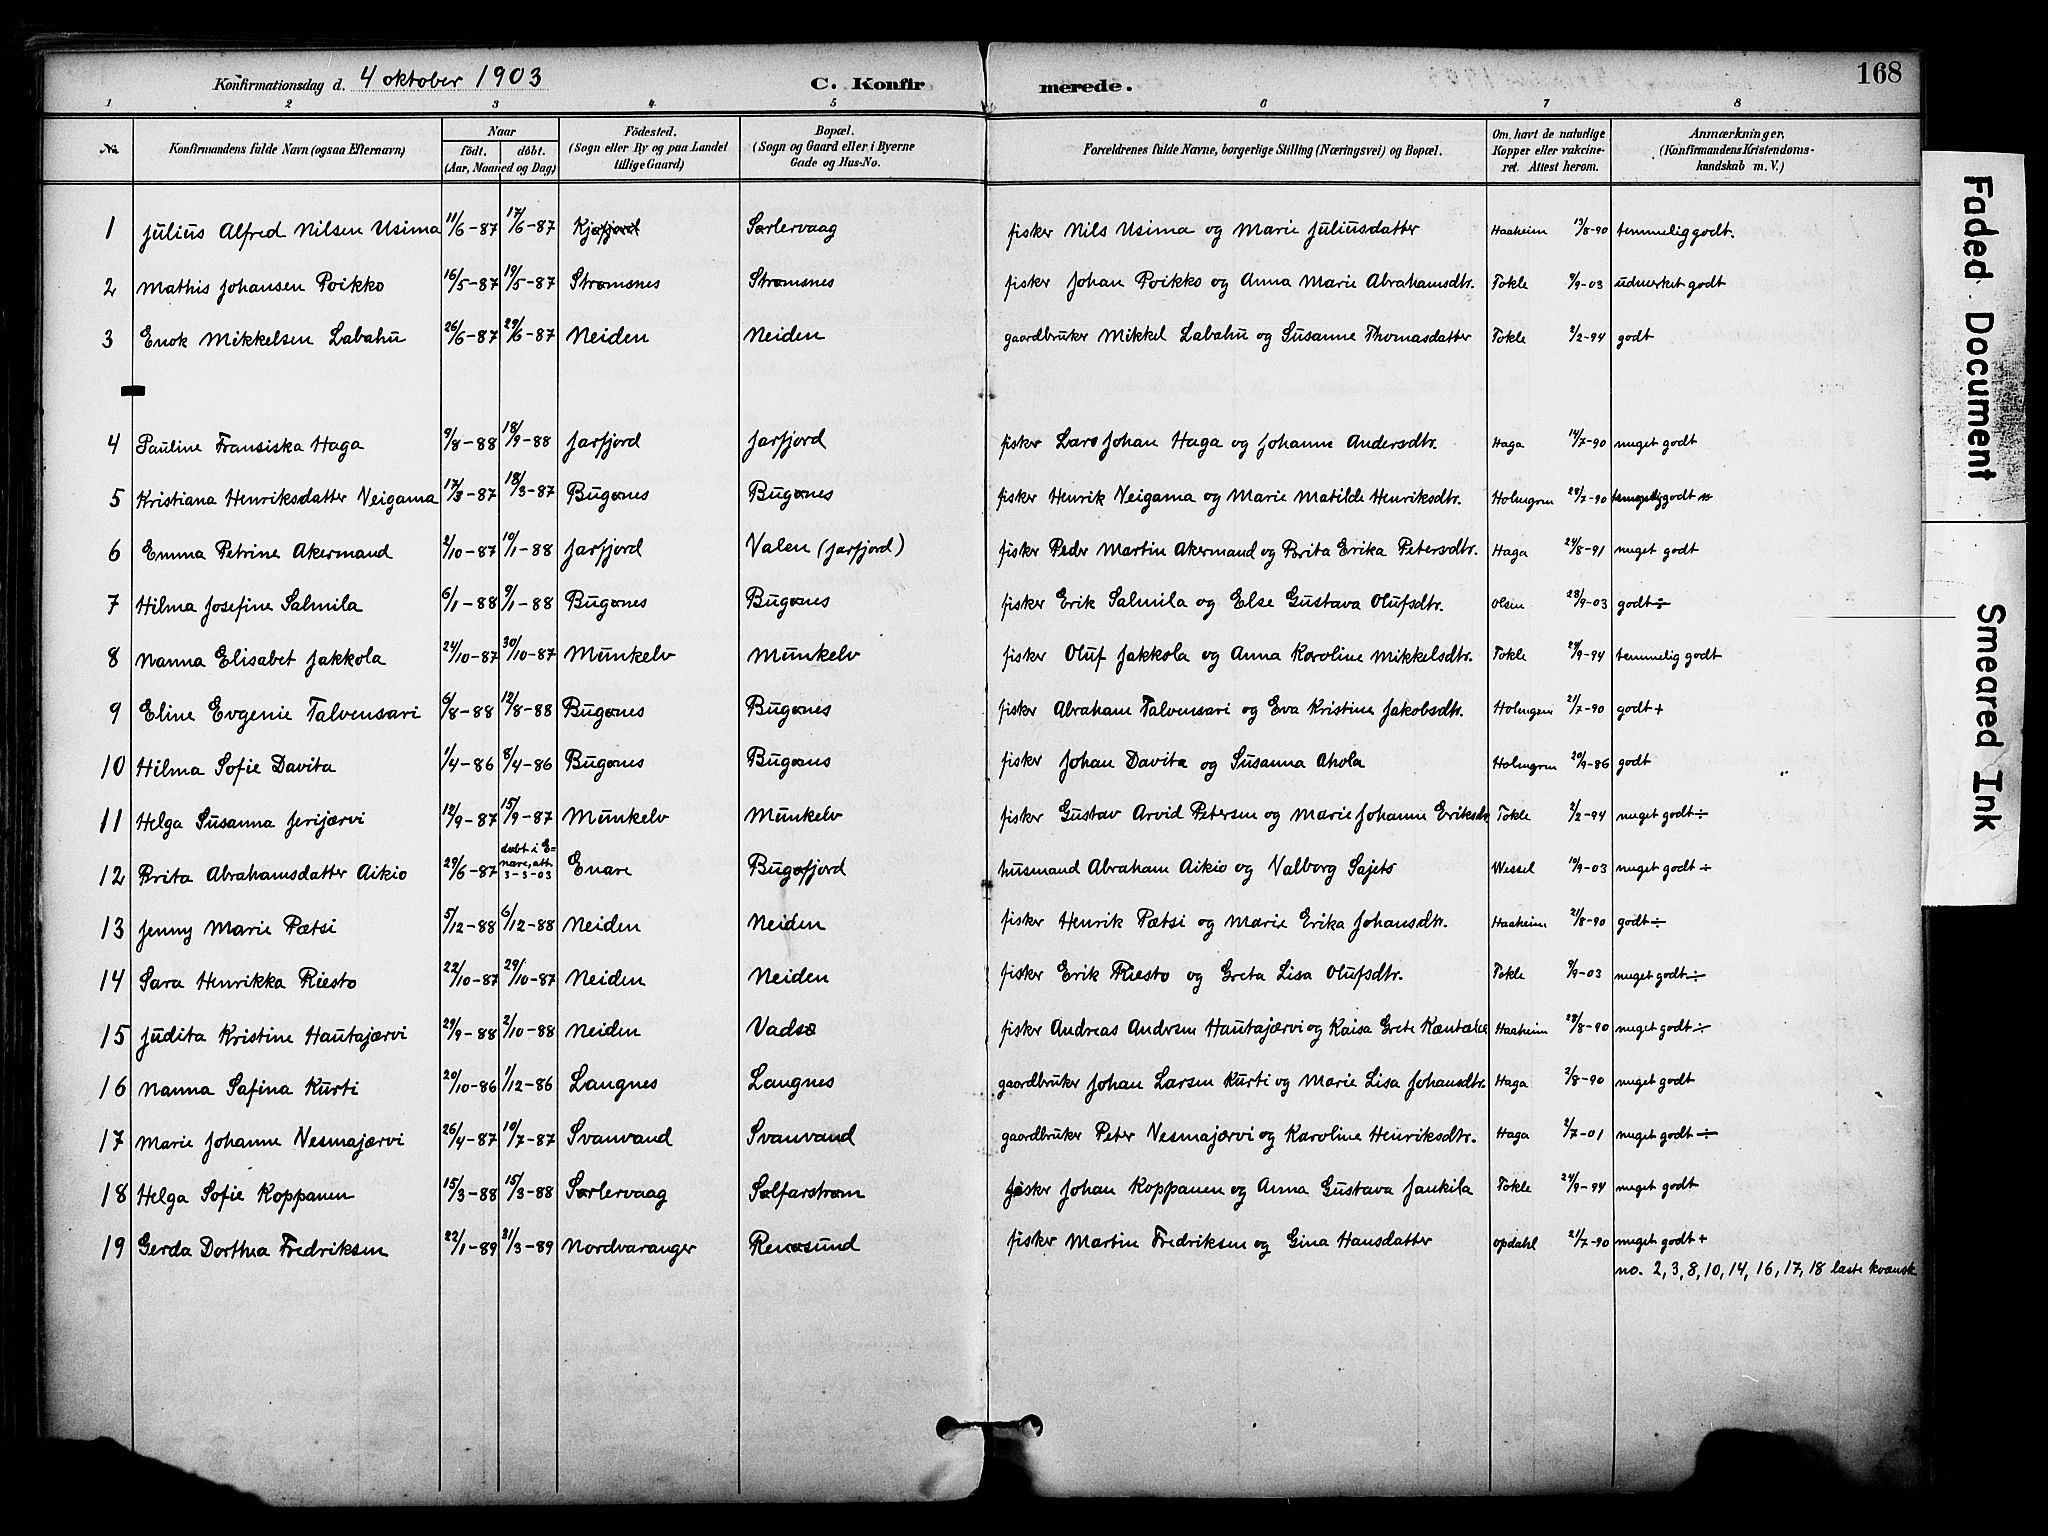 Konfirmationsdag d. 4 oktober 1903 C. Konfirmerede. 168
1 2 3 4 5 6 7 8
No. Konfirmandens fulde Navn (ogsaa Efternavn) Naar födt. döbt. (Aar, Maaned og Dag) Födested. (Sogn eller By og paa Landet tillige Gaard) Bopæl. (Sogn og Gaard eller i Byerne Gade og Hus-No. Forældrenes fulde Navne, borgerlige Stilling (Næringsvei) og Bopæl. Om havt de naturlige Kopper eller vakcineret. Attest herom. Anmærkninger, (Konfirmandens Kristendomskundskab m. V.)
1 Julius Alfred Nilsen Usima 11/6-87 17/6-87 Kjøfjord Sørlervaag fisker Nils Usima og Marie Juliusdatter Haaheim 13/8-90 temmelig godt.
2 Mathis Johansen Poikko 16/5-87 19/5-87 Strømsnes Strømsnes fisker Johan Poikko og Anna Marie Abrahamsdtr. Tokle 9/9-03 udmerket godt
3 Enok Mikkelsen Labahu 26/6-87 29/6-87 Neiden Neiden gaardbruker Mikkel Labahu og Susanne Thomasdatter Tokle 2/2-94 godt
4 Pauline Fransiska Haga 9/8-88 18/9-88 Jarfjord Jarfjord fisker Lars Johan Haga og Johanne Andersdtr. Haga 14/7-90 meget godt
5 Kristiana Henriksdatter Neigama 17/3-87 18/3-87 Bugønes Bugønes fisker Henrik Neigama og Marie Matilde Henriksdtr. Holmgren 29/7-90 godt
6 Emma Petrine Akermand 2/10-87 10/1-88 Jarfjord Valen (Jarfjord) fisker Peder Martin Akermand og Brita Erika Petersdtr. Haga 24/8-91 meget godt
7 Hilma Josefine Salmila 6/1-88 9/1-88 Bugønes Bugønes fisker Erik Salmila og Else Gustava Olufsdtr. Olsen 28/9-03 godt ÷
8 Nanna Elisabet Jakkola 24/10-87 30/10-87 Munkelv Munkelv fisker Oluf Jakkola og Anna Karoline Mikkelsdtr. Tokle 29/9-94 temmelig godt
9 Eline Evgenie Talvensari 6/8-88 12/8-88 Bugønes Bugønes fisker Abraham Talvensari og Eva Kristine Jakobsdtr. Holmgren 21/7-90 godt +
10 Hilma Sofie Davita 1/4-86 8/4-86 Bugønes Bugønes fisker Johan Davita og Susanna Ahola Holmgren 20/9-86 godt
11 Helga Susanna Jerijærvi 12/9-87 15/9-87 Munkelv Munkelv fisker Gustav Arvid Petersen og Marie Johanne Eriksdtr Tokle 2/2-94 meget godt ÷
12 Brita Abrahamsdatter Aikio 29/6-87 døbt i Enare, att. 3-3-03 Enare Bugøfjord husmand Abraham Aikio og Valborg Sajets Wessel 10/9-03 meget godt ÷
13 Jenny Marie Pætsi 5/12-88 6/12-88 Neiden Neiden fisker Henrik Pætsi og Marie Erika Johansdtr. Haaheim 21/8-90 godt ÷
14 Sara Henrikka Riesto 22/10-87 29/10-87 Neiden Neiden fisker Erik Riesto og Greta Lisa Olufsdtr. Tokle 9/9-03 meget godt ÷
15 Judita Kristine Hautajærvi 29/9-88 2/10-88 Neiden Vadsø fisker Andreas Andersen Hautajærvi og Kaisa Grete Haaheim 28/8-90 meget godt ÷
16 Nanna Safina Kurti 20/10-86 1/12-86 Langnes Langnes gaardbruker Johan Larsen Kurti og Marie Lisa Johansdtr. Haga 2/8-90 meget godt
17 Marie Johanne Nesmajærvi 26/4-87 10/7-87 Svanvand Svanvand gaardbruker Peter Nesmajærvi og Karoline Henriksdtr. Haga 2/7-01 meget godt ÷
18 Helga Sofie Koppanen 15/3-88 15/3-88 Sørlervaag Solfarstrøm fisker Johan Koppanen og Anna Gustava Jankila Tokle 24/9-94 meget godt
19 Gerda Dorthea Fredriksen 22/1-89 31/3-89 Nordvaranger Renøsund fisker Martin Fredriksen og Gina Hansdatter Opdahl 21/7-90 meget godt +
no. 2, 3, 8, 10, 14, 16, 17, 18 læste kvænsk
Faded Document
Smeared Ink